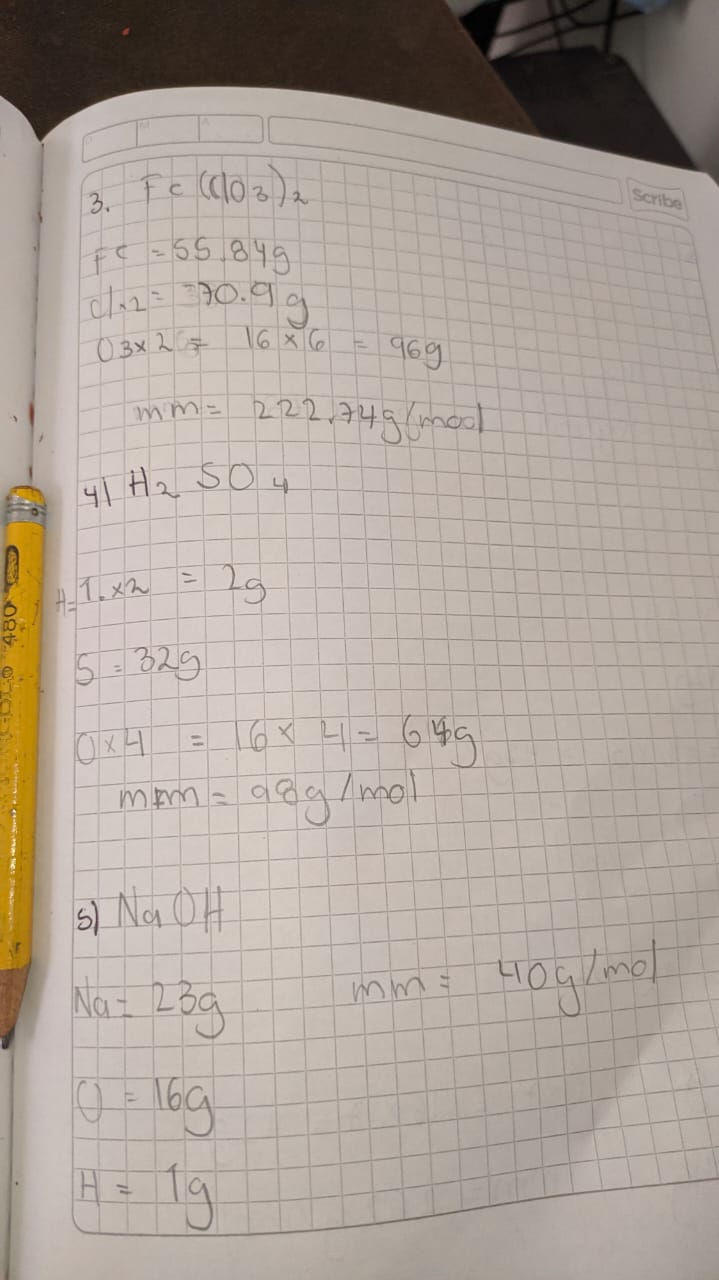 Scribe
3. Fe (ClO3)2
Fe = 55.84g
Cl.2 = 70.9 g
O3x2 = 16 x 6 = 96g
mm = 222.74g/mol
4) H2 SO4
H= 1. x2 = 2g
S = 32g
O x 4 = 16 x 4 = 64g
mm = 98g/mol
5) NaOH
Na = 23g mm = 40g/mol
O = 16g
H = 1g
480